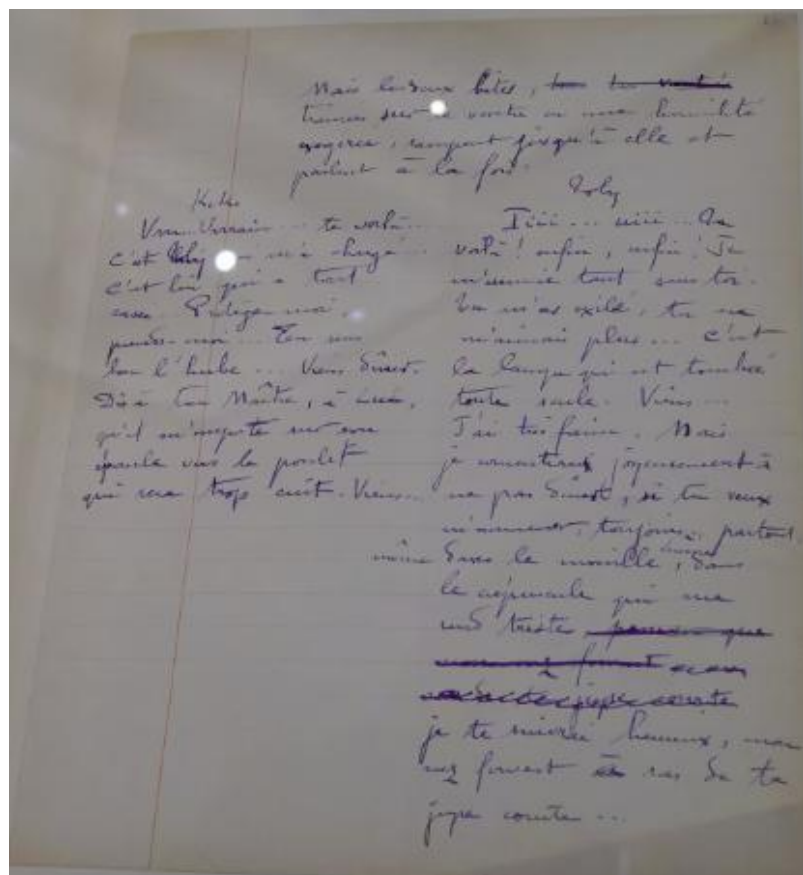 Mais les deux bêtes,
traînées sur le ventre en une humilité
exagérée, rampent jusqu'à elle et
parlent à la fois.
Kiki
Vrr... Vrrrais... te voilà...
C'est Toby m'a
C'est lui qui a tout
cassé. Protège-moi,
prends-moi...
l'herbe... Viens dîner.
Dis à ton Maître, à Lui,
qu'il m'emporte sur son
épaule vers le poulet
qui sera trop cuit. Viens...
Toby
Iiii... uiii... Te
voilà! enfin, enfin! Je
m'ennuie tant sans toi.
Tu m'as exilé, tu ne
m'aimais plus... C'est
la lampe qui est tombée
toute seule. Viens...
J'ai très faim. Mais
je consentirais joyeusement à
ne pas dîner, si tu veux
m'emmener, toujours, partout,
même dans le mouillé, dans
le crépuscule qui me
rend triste,
je te suivrai heureux, mon
nez fervent au ras de ta
jupe courte...